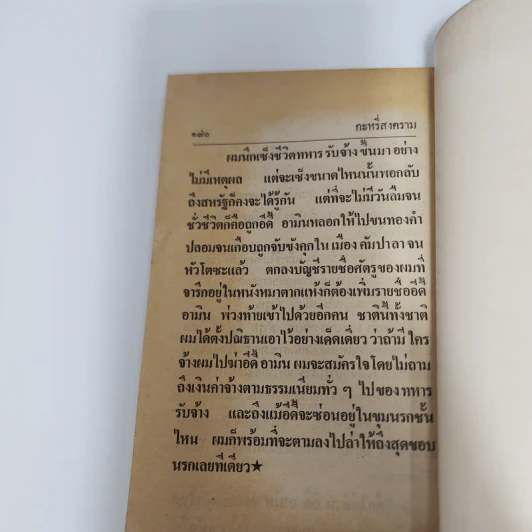 ๑๗๐ กะหรี่สงคราม
ผมนึกเซ็งชีวิตทหารรับจ้าง ขึ้นมาอย่าง
ไม่มีเหตุผล แต่จะเซ็งขนาดไหนนั้นพอกลับ
ถึงสหรัฐก็คงจะได้รู้กัน แต่ที่จะไม่มีวันลืมจน
ชั่วชีวิตก็คือถูกอีดี้ อามินหลอกให้ไปขนทองคำ
ปลอมจนเกือบถูกจับขังคุกใน เมือง คัมปาลา จน
หัวโตซะแล้ว ตกลงบัญชีรายชื่อศัตรูของผมที่
จารึกอยู่ในหนังหมาตากแห้งก็ต้องเพิ่มรายชื่ออีดี้
อามิน พ่วงท้ายเข้าไปด้วยอีกคน ชาตินี้ทั้งชาติ
ผมได้ตั้งปณิธานเอาไว้อย่างเด็ดเดี่ยว ว่าถ้ามี ใคร
จ้างผมไปฆ่าอีดี้ อามิน ผมจะสมัครใจ โดยไม่ถาม
ถึงเงินค่าจ้างตามธรรมเนียมทั่ว ๆ ไปของทหาร
รับจ้าง และถึงแม้อีดี้จะซ่อนอยู่ในขุมนรกชั้น
ไหน ผมก็พร้อมที่จะตามลงไปล่าให้ถึงสุดขอบ
นรกเลยทีเดียว★